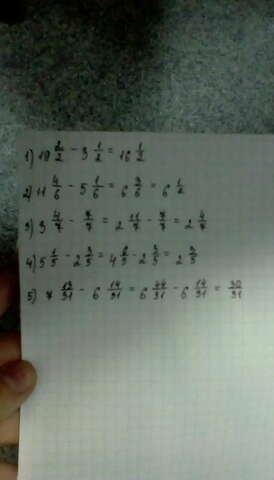 1) 19 2/2 - 3 1/2 = 16 1/2
2) 11 4/6 - 5 1/6 = 6 3/6 = 6 1/2
3) 3 4/7 - 7/7 = 2 11/7 - 7/7 = 2 4/7
4) 5 1/5 - 2 3/5 = 4 6/5 - 2 3/5 = 2 3/5
5) 7 13/31 - 6 14/31 = 6 44/31 - 6 14/31 = 30/31